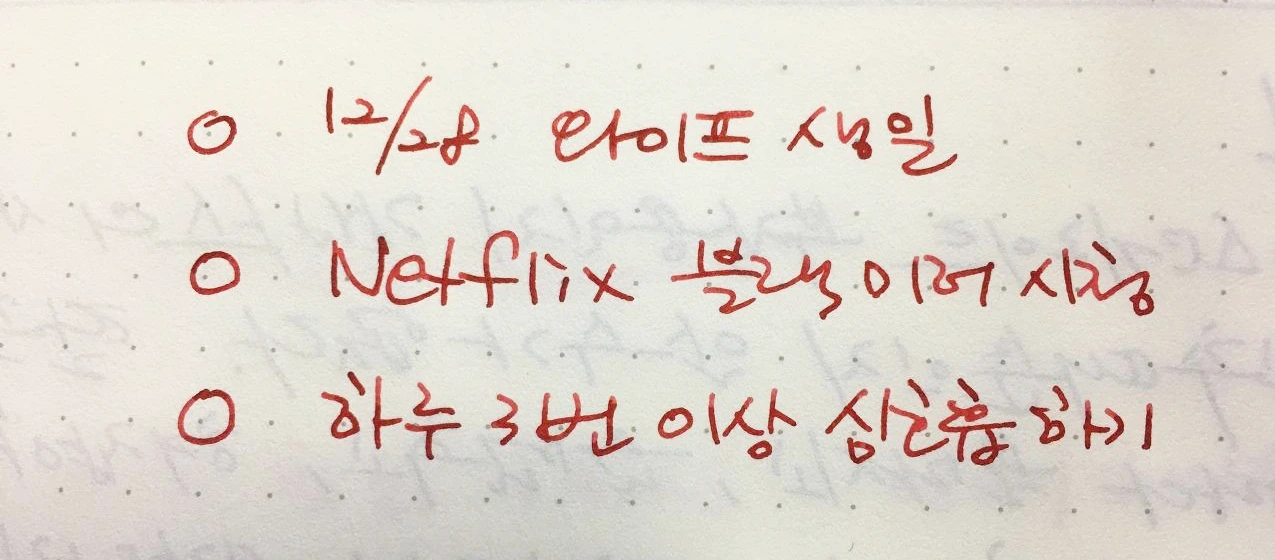 ○ 12/28 와이프 생일
○ Netflix 블랙미러 시청
○ 하루 3번 이상 심호흡 하기